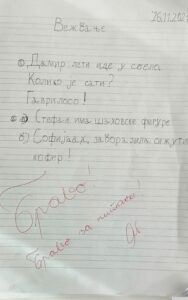 26.11.202
Вежбање
а) Дамир лети иде у село.
Колико је сати?
Гаврилосо!
б) Стефан има шаховске фигуре
в) Софија, заборавила си жути
кофер!
Браво!
Браво за писање